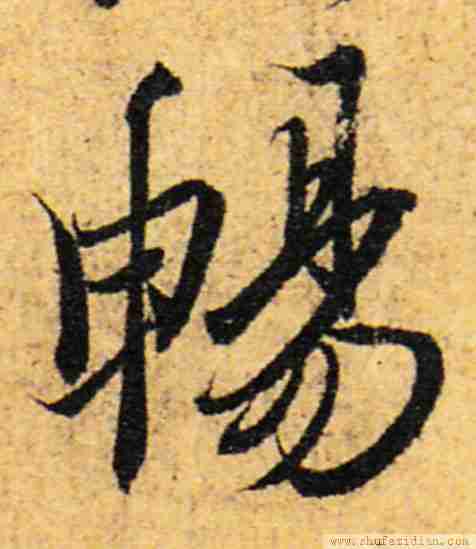 暢
www.shufazidian.com